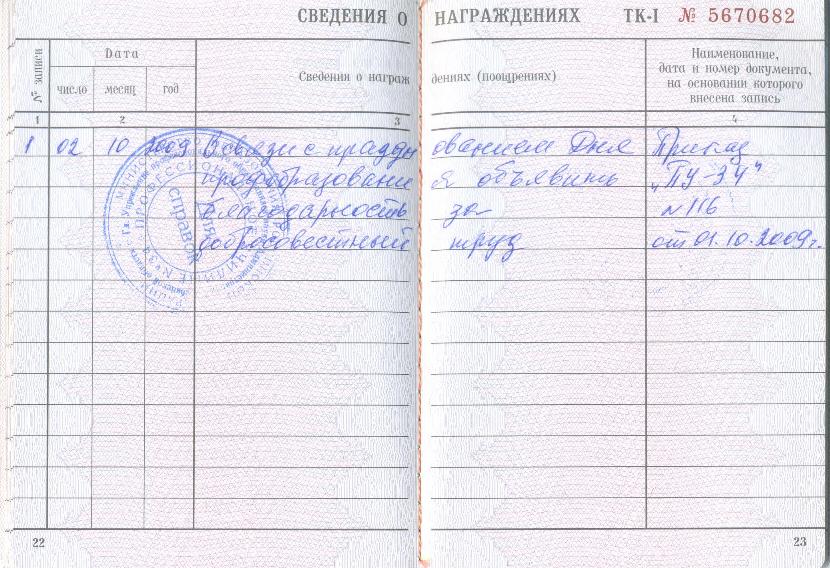 СВЕДЕНИЯ О НАГРАЖДЕНИЯХ ТК-I № 5670682
№ записи
Дата
число месяц год
Сведения о награждениях (поощрениях)
Наименование,
дата и номер документа,
на основании которого
внесена запись
1 2 3 4
1 02 10 2009 В связи с праздн ованием Дня Приказ
профобразовани я объявить "ПУ-34"
благодарность за №116
добросовестный труд от 01.10.2009г.
справок
22 23